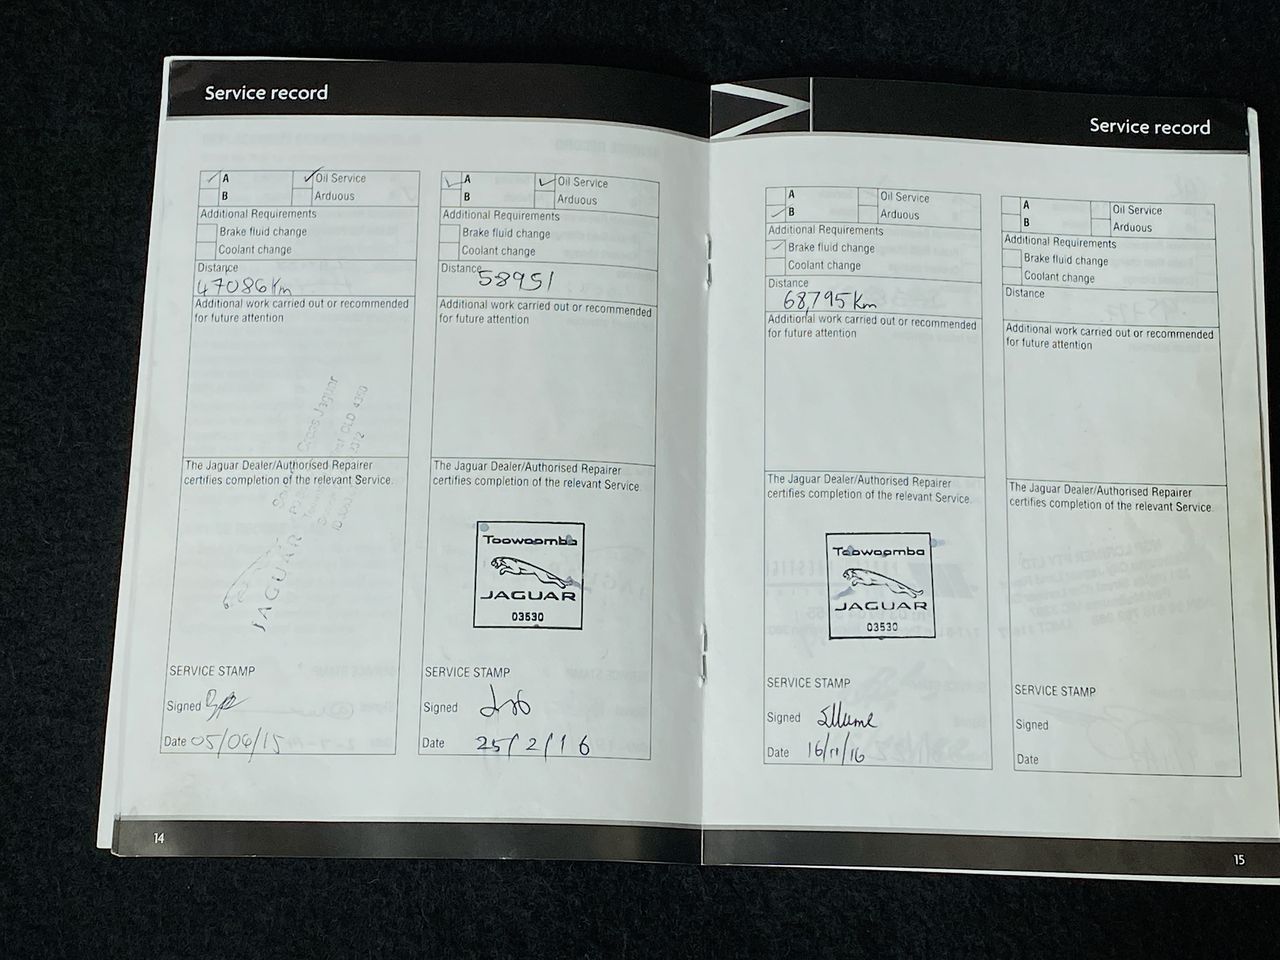 Service record
A
Oil Service
B
Arduous
Additional Requirements
Brake fluid change
Coolant change
Distance
47086Km
Additional work carried out or recommended
for future attention
Jaguar
QLD 4350
The Jaguar Dealer/Authorised Repairer
certifies completion of the relevant Service.
JAGUAR
SERVICE STAMP
Signed
Date 05/06/15
A
Oil Service
B
Arduous
Additional Requirements
Brake fluid change
Coolant change
Distance
58951
Additional work carried out or recommended
for future attention
The Jaguar Dealer/Authorised Repairer
certifies completion of the relevant Service.
Toowoomba
JAGUAR
03530
SERVICE STAMP
Signed
Date 25/2/16
14
Service record
A
Oil Service
B
Arduous
Additional Requirements
Brake fluid change
Coolant change
Distance
68,795Km
Additional work carried out or recommended
for future attention
The Jaguar Dealer/Authorised Repairer
certifies completion of the relevant Service.
Toowoomba
JAGUAR
03530
SERVICE STAMP
Signed
Date 16/11/16
A
Oil Service
B
Arduous
Additional Requirements
Brake fluid change
Coolant change
Distance
Additional work carried out or recommended
for future attention
The Jaguar Dealer/Authorised Repairer
certifies completion of the relevant Service.
SERVICE STAMP
Signed
Date
15